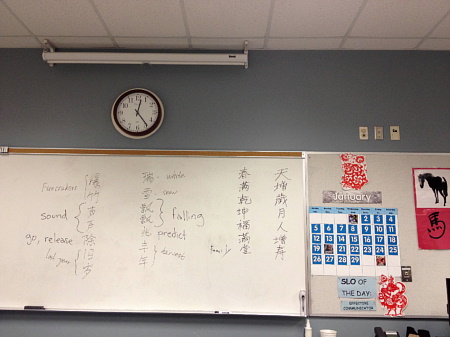 天增歲月人增壽
春滿乾坤福滿堂
family
瑞雪飄飄兆丰年
white
snow
falling
predict
harvest
爆竹声声除旧岁
Firecrackers
sound
go, release
last year
January
1 2 3 4
5 6 7 8 9 10 11
12 13 14 15 16 17 18
19 21 22 23 24 25
26 27 28 29 30
馬
SLO OF
THE DAY:
EFFECTIVE
COMMUNICATOR